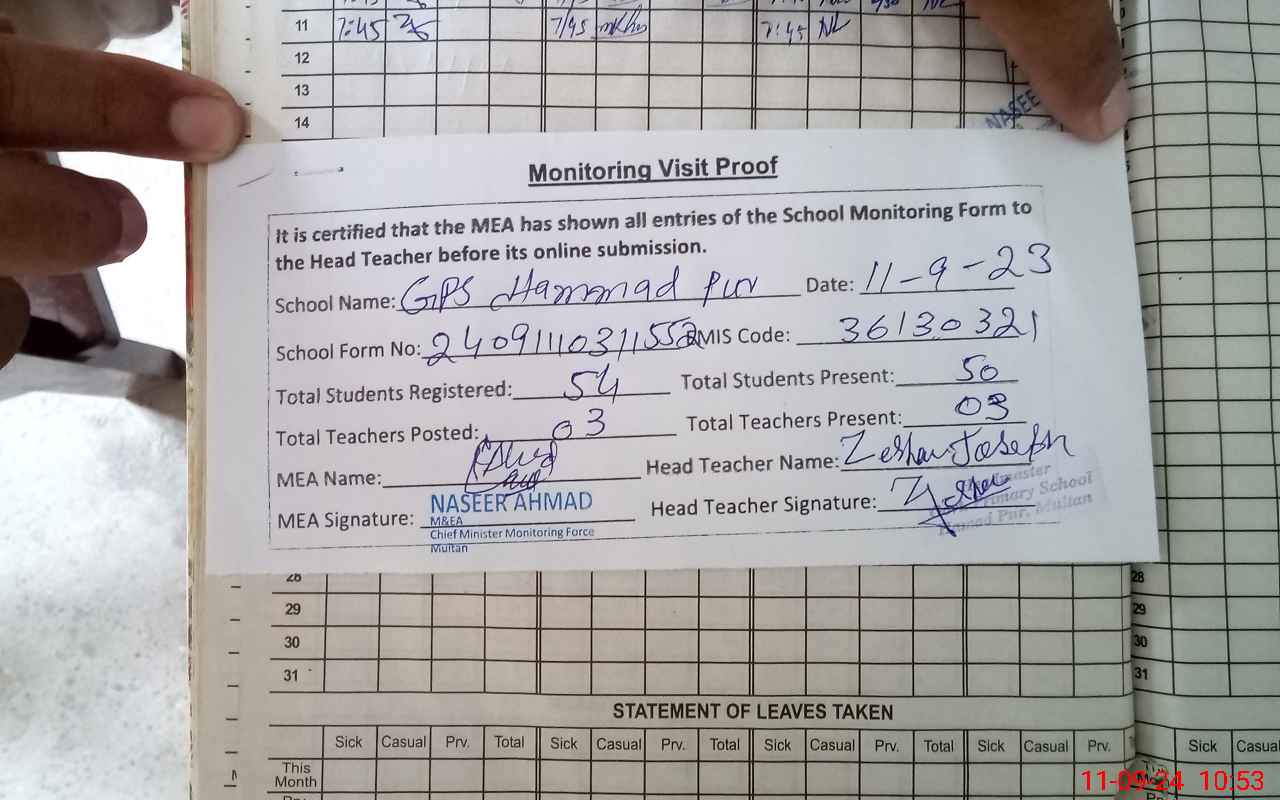 11 7:45 7/45 7:45 NL
12
13
14
NASEE
Monitoring Visit Proof
It is certified that the MEA has shown all entries of the School Monitoring Form to
the Head Teacher before its online submission.
School Name: GPS Hammad Pur Date: 11-9-23
School Form No: 24091110311552 EMIS Code: 36130321
Total Students Registered: 54 Total Students Present: 50
Total Teachers Posted: 03 Total Teachers Present: 03
MEA Name: Head Teacher Name: Zeshan Joseph
MEA Signature: NASEER AHMAD Head Teacher Signature:
M&EA
Chief Minister Monitoring Force
Multan
master
Primary School
Pur, Multan
28 28
29 29
30 30
31 31
STATEMENT OF LEAVES TAKEN
Sick Casual Prv. Total Sick Casual Prv. Total Sick Casual Prv. Total Sick Casual Prv. Sick Casual
This
Month
11-09-24 10:53